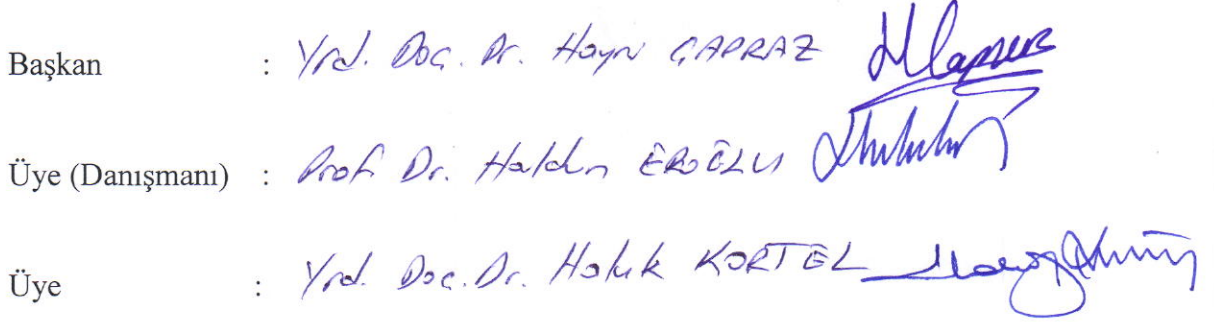 Başkan : Yrd. Doç. Dr. Hayri ÇAPRAZ
Üye (Danışmanı) : Prof. Dr. Haldun EROĞLU
Üye : Yrd. Doç. Dr. Haluk KORTEL